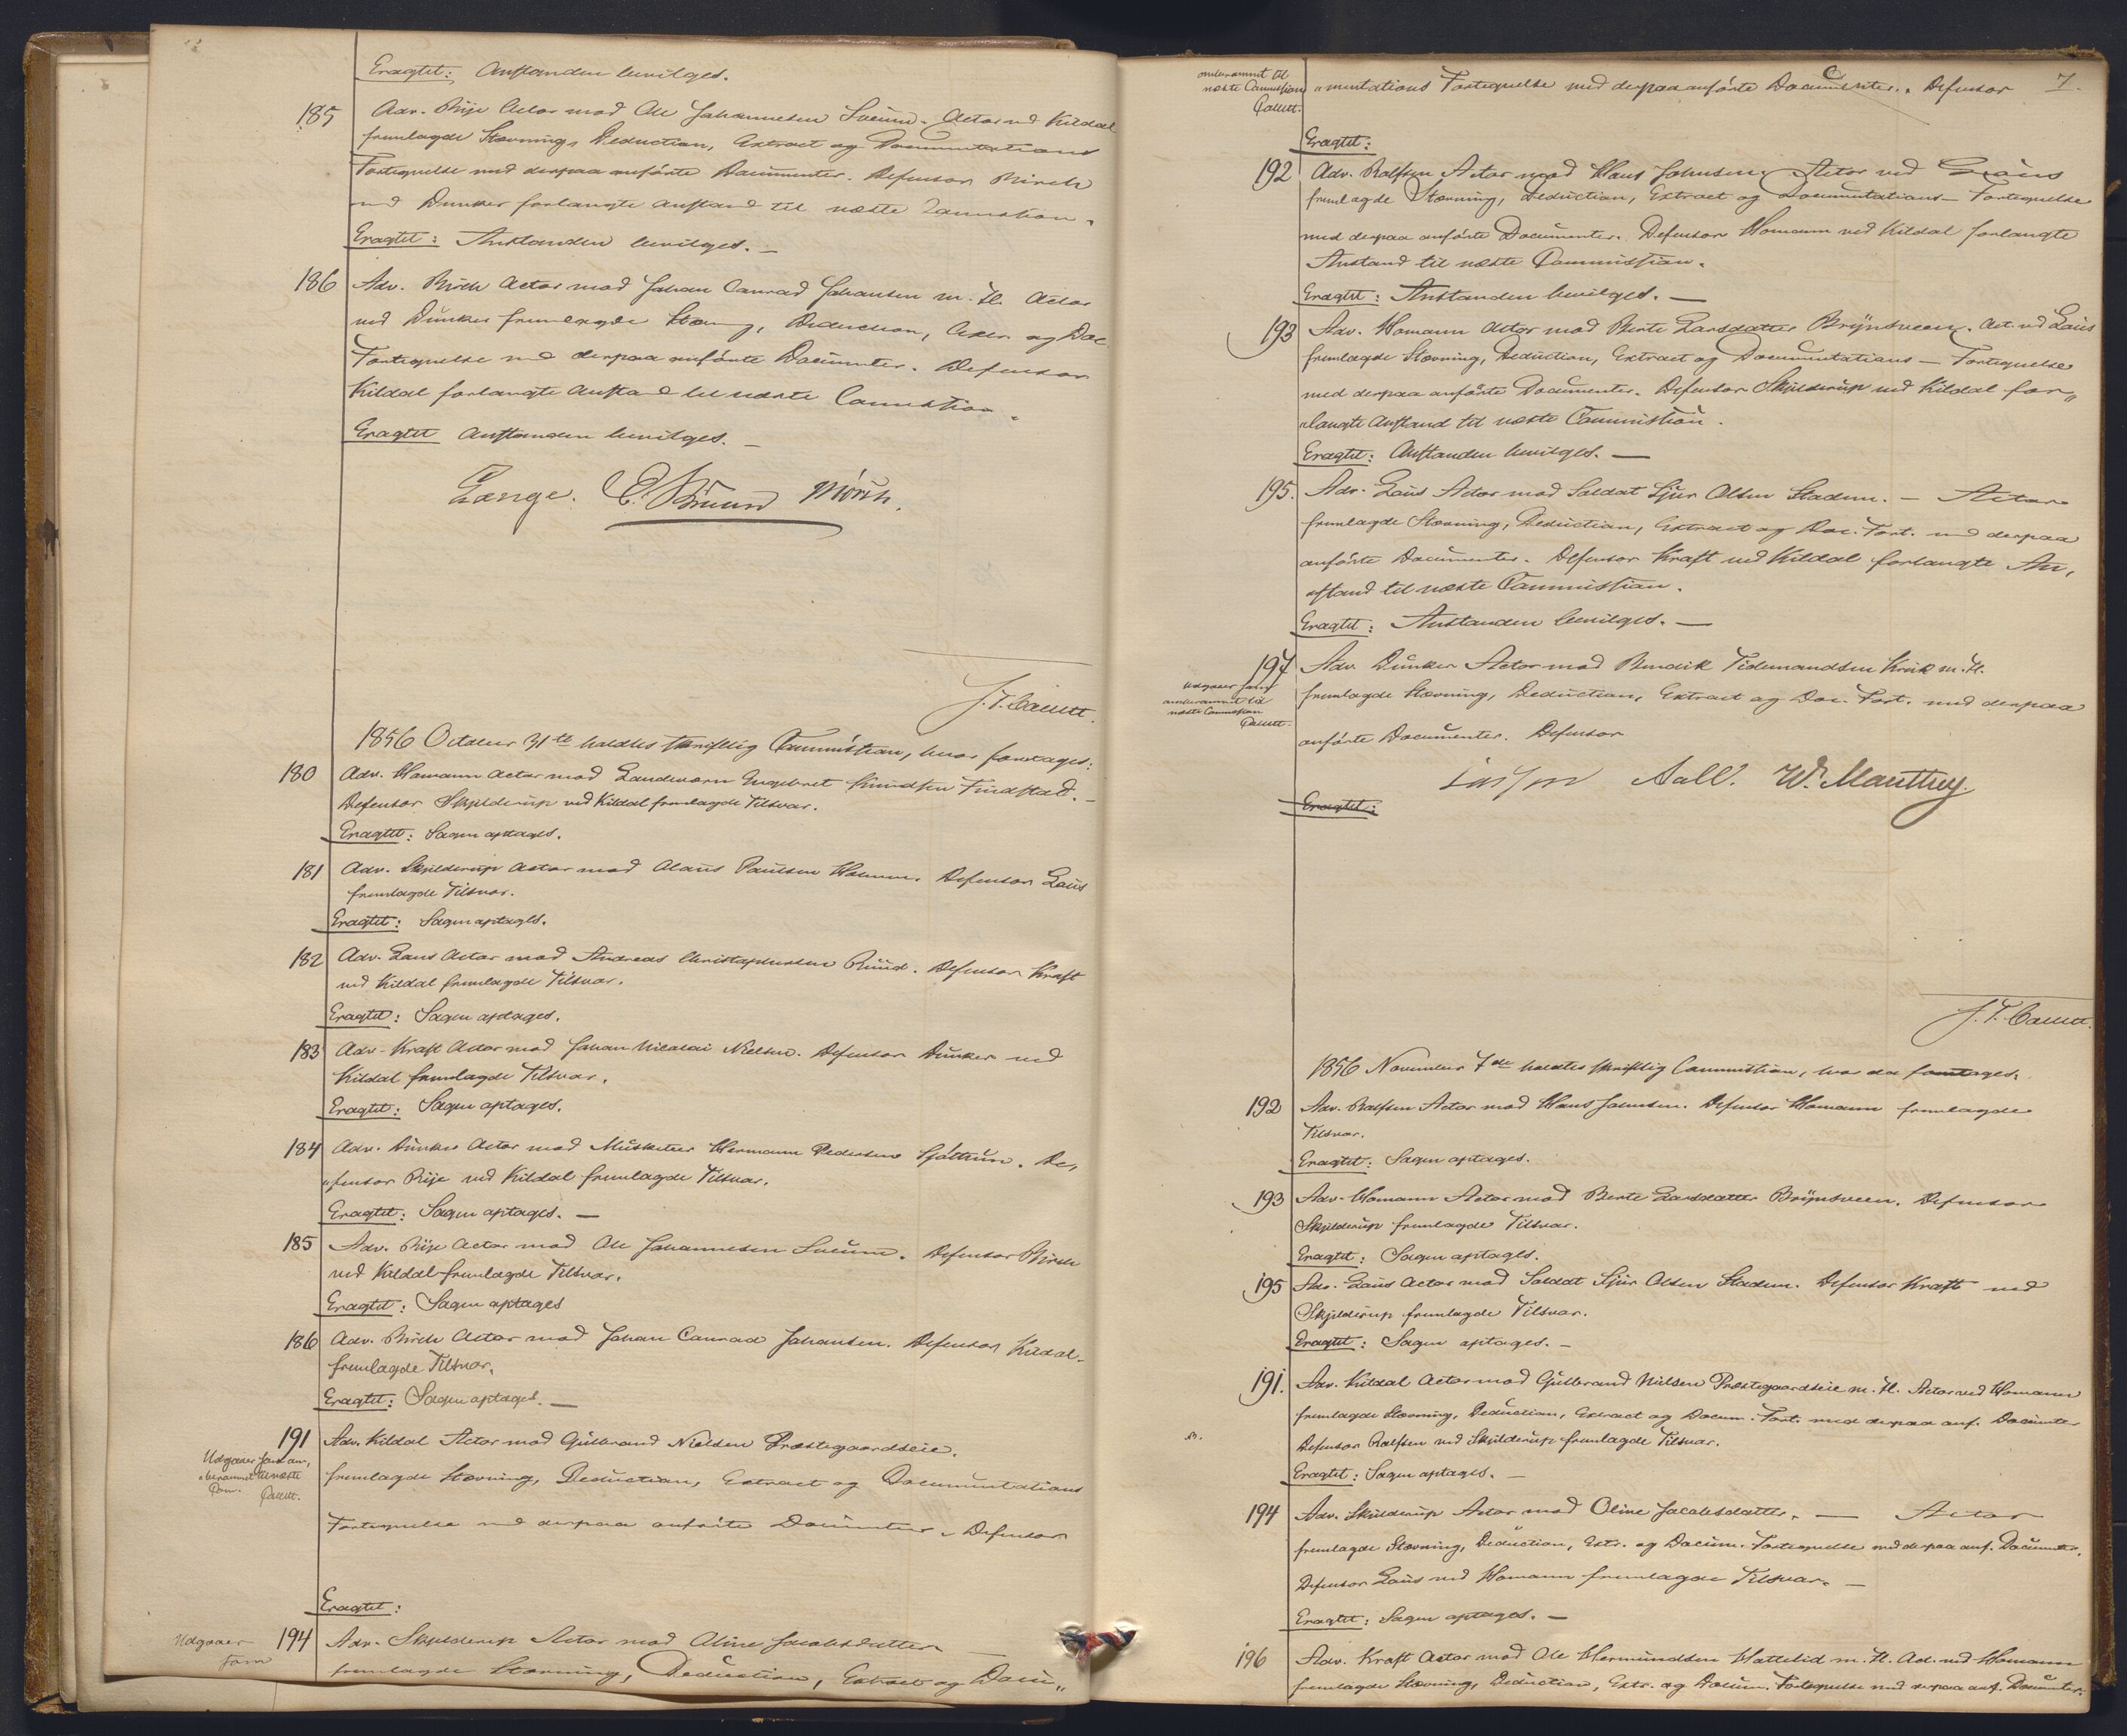 Eragtet: Anstanden bevilges.
185 Adv. Rije Actor mod Ole Johannesen Sveum. Actor ved Kildal
fremlagde Stævning, Deduction, Extract og Documentations
Fortegnelse med derpaa anførte Documenter. Defensor Birch
ved Dunker forlangte Anstand til næste Commission.
Eragtet: Anstanden bevilges. —
186 Adv. Birch Actor mod Johan Conrad Johansen m. Fl. Actor
ved Dunker fremlagde Stævning, Deduction, Extr. og Doc
Fortegnelse med derpaa anførte Documenter. Defensor
Kildal forlangte Anstand til næste Commission.
Eragtet Anstanden bevilges. —
Lange. E. Bruun Mörch.
J. F. Collett.
1856 October 31te holdtes skriftlig Commission, hvor foretages:
180 Adv. Homann Actor mod Landværn Engebret Knudsen Findstad. —
Defensor Skjelderup ved Kildal fremlagde Tilsvar.
Eragtet: Sagen optages.
181 Adv. Skjelderup Actor mod Olaus Paulsen Holmen. Defensor Laus
fremlagde Tilsvar.
Eragtet: Sagen optages.
182 Adv. Laus Actor mod Andreas Christophersen Ruud. Defensor Kraft
ved Kildal fremlagde Tilsvar.
Eragtet: Sagen optages.
183 Adv. Kraft Actor mod Johan Nicolai Nielsen. Defensor Dunker ved
Kildal fremlagde Tilsvar.
Eragtet: Sagen optages.
184 Adv. Dunker Actor mod Musketeer Hermann Pedersen De,
„fensor Rije ved Kildal fremlagde Tilsvar.
Eragtet: Sagen optages. —
185 Adv. Rije Actor mod Ole Johannesen Sveum. Defensor Birch
ved Kildal fremlagde Tilsvar.
Eragtet: Sagen optages
186 Adv. Birch Actor mod Johan Conrad Johansen. Defensor Kildal
fremlagde Tilsvar.
Eragtet: Sagen optages. —
191 Adv. Kildal Actor mod Gulbrand Nielsen Præstegaardseie.
Udgaaer som om,
„berammet til næste
Com. Collett.
fremlagde Stævning, Deduction, Extract og Documentations
Fortegnelse med derpaa anførte Documenter. Defensor
Eragtet:
Udgaaer
som
194 Adv. Skjelderup Actor mod Oline Jacobsdatter. —
fremlagde Stævning, Deduction, Extract og Docu„
omberammet til
næste Commission
Collett.
7.
„mentations Fortegnelse med derpaa anførte Documenter. Defensor
Eragtet:
192 Adv. Rolfsen Actor mod Hans Johnsen. Actor ved Laus
fremlagde Stævning, Deduction, Extract og Documentations — Fortegnelse
med derpaa anførte Documenter. Defensor Homann ved Kildal forlangte
Anstand til næste Commission.
Eragtet: Anstanden bevilges. —
193 Adv. Homann Actor mod Berte Larsdatter Brynsveen. Act. ved Laus
fremlagde Stævning, Deduction, Extract og Documentations — Fortegnelse
med derpaa anførte Documenter. Defensor Skjelderup ved Kildal for„
„langte Anstand til næste Commission.
Eragtet: Anstanden bevilges. —
195. Adv. Laus Actor mod Soldat Sjur Olsen Stadem. — Actor
fremlagde Stævning, Deduction, Extract og Doc. Fort. med derpaa
anførte Documenter. Defensor Kraft ved Kildal forlangte An,
„stand til næste Commission.
Eragtet: Anstanden bevilges. —
197 Adv. Dunker Actor mod Bendik Tidemandsen Krik m. Fl.
Udgaaer som
omberammet til
næste Commission
Collett.
fremlagde Stævning, Deduction, Extract og Doc. Fort. med derpaa
anførte Documenter. Defensor
Aall. W. Manthey.
Eragtet:
J. F. Collett.
1856 November 7de holdtes skriftlig Commission, hvor da foretages:
192 Adv. Rolfsen Actor mod Hans Johnsen. Defensor Homann fremlagde
Tilsvar.
Eragtet: Sagen optages.
193 Adv. Homann Actor mod Berte Larsdatter Brynsveen. Defensor
Skjelderup fremlagde Tilsvar.
Eragtet: Sagen optages.
195 Adv. Laus Actor mod Soldat Sjur Olsen Stadem. Defensor Kraft ved
Skjelderup fremlagde Tilsvar.
Eragtet: Sagen optages. —
191. Adv. Kildal Actor mod Gulbrand Nielsen Præstegaardseie m. Fl. Actor ved Homann
fremlagde Stævning, Deduction, Extract og Docum. Fort. med derpaa anf. Documenter
Defensor Rolfsen ved Skjelderup fremlagde Tilsvar.
Eragtet: Sagen optages. —
194 Adv. Skjelderup Actor mod Oline Jacobsdatter. — Actor
fremlagde Stævning, Deduction, Extr. og Docum. Fortegnelse med derpaa anf. Documenter.
Defensor Laus ved Homann fremlagde Tilsvar. —
Eragtet: Sagen optages. —
196 Adv. Kraft Actor mod Ole Hermundsen Hattelid m. Fl. Act. ved Homann
fremlagde Stævning, Deduction, Extr. og Docum. Fortegnelse med derpaa anf. Documenter.